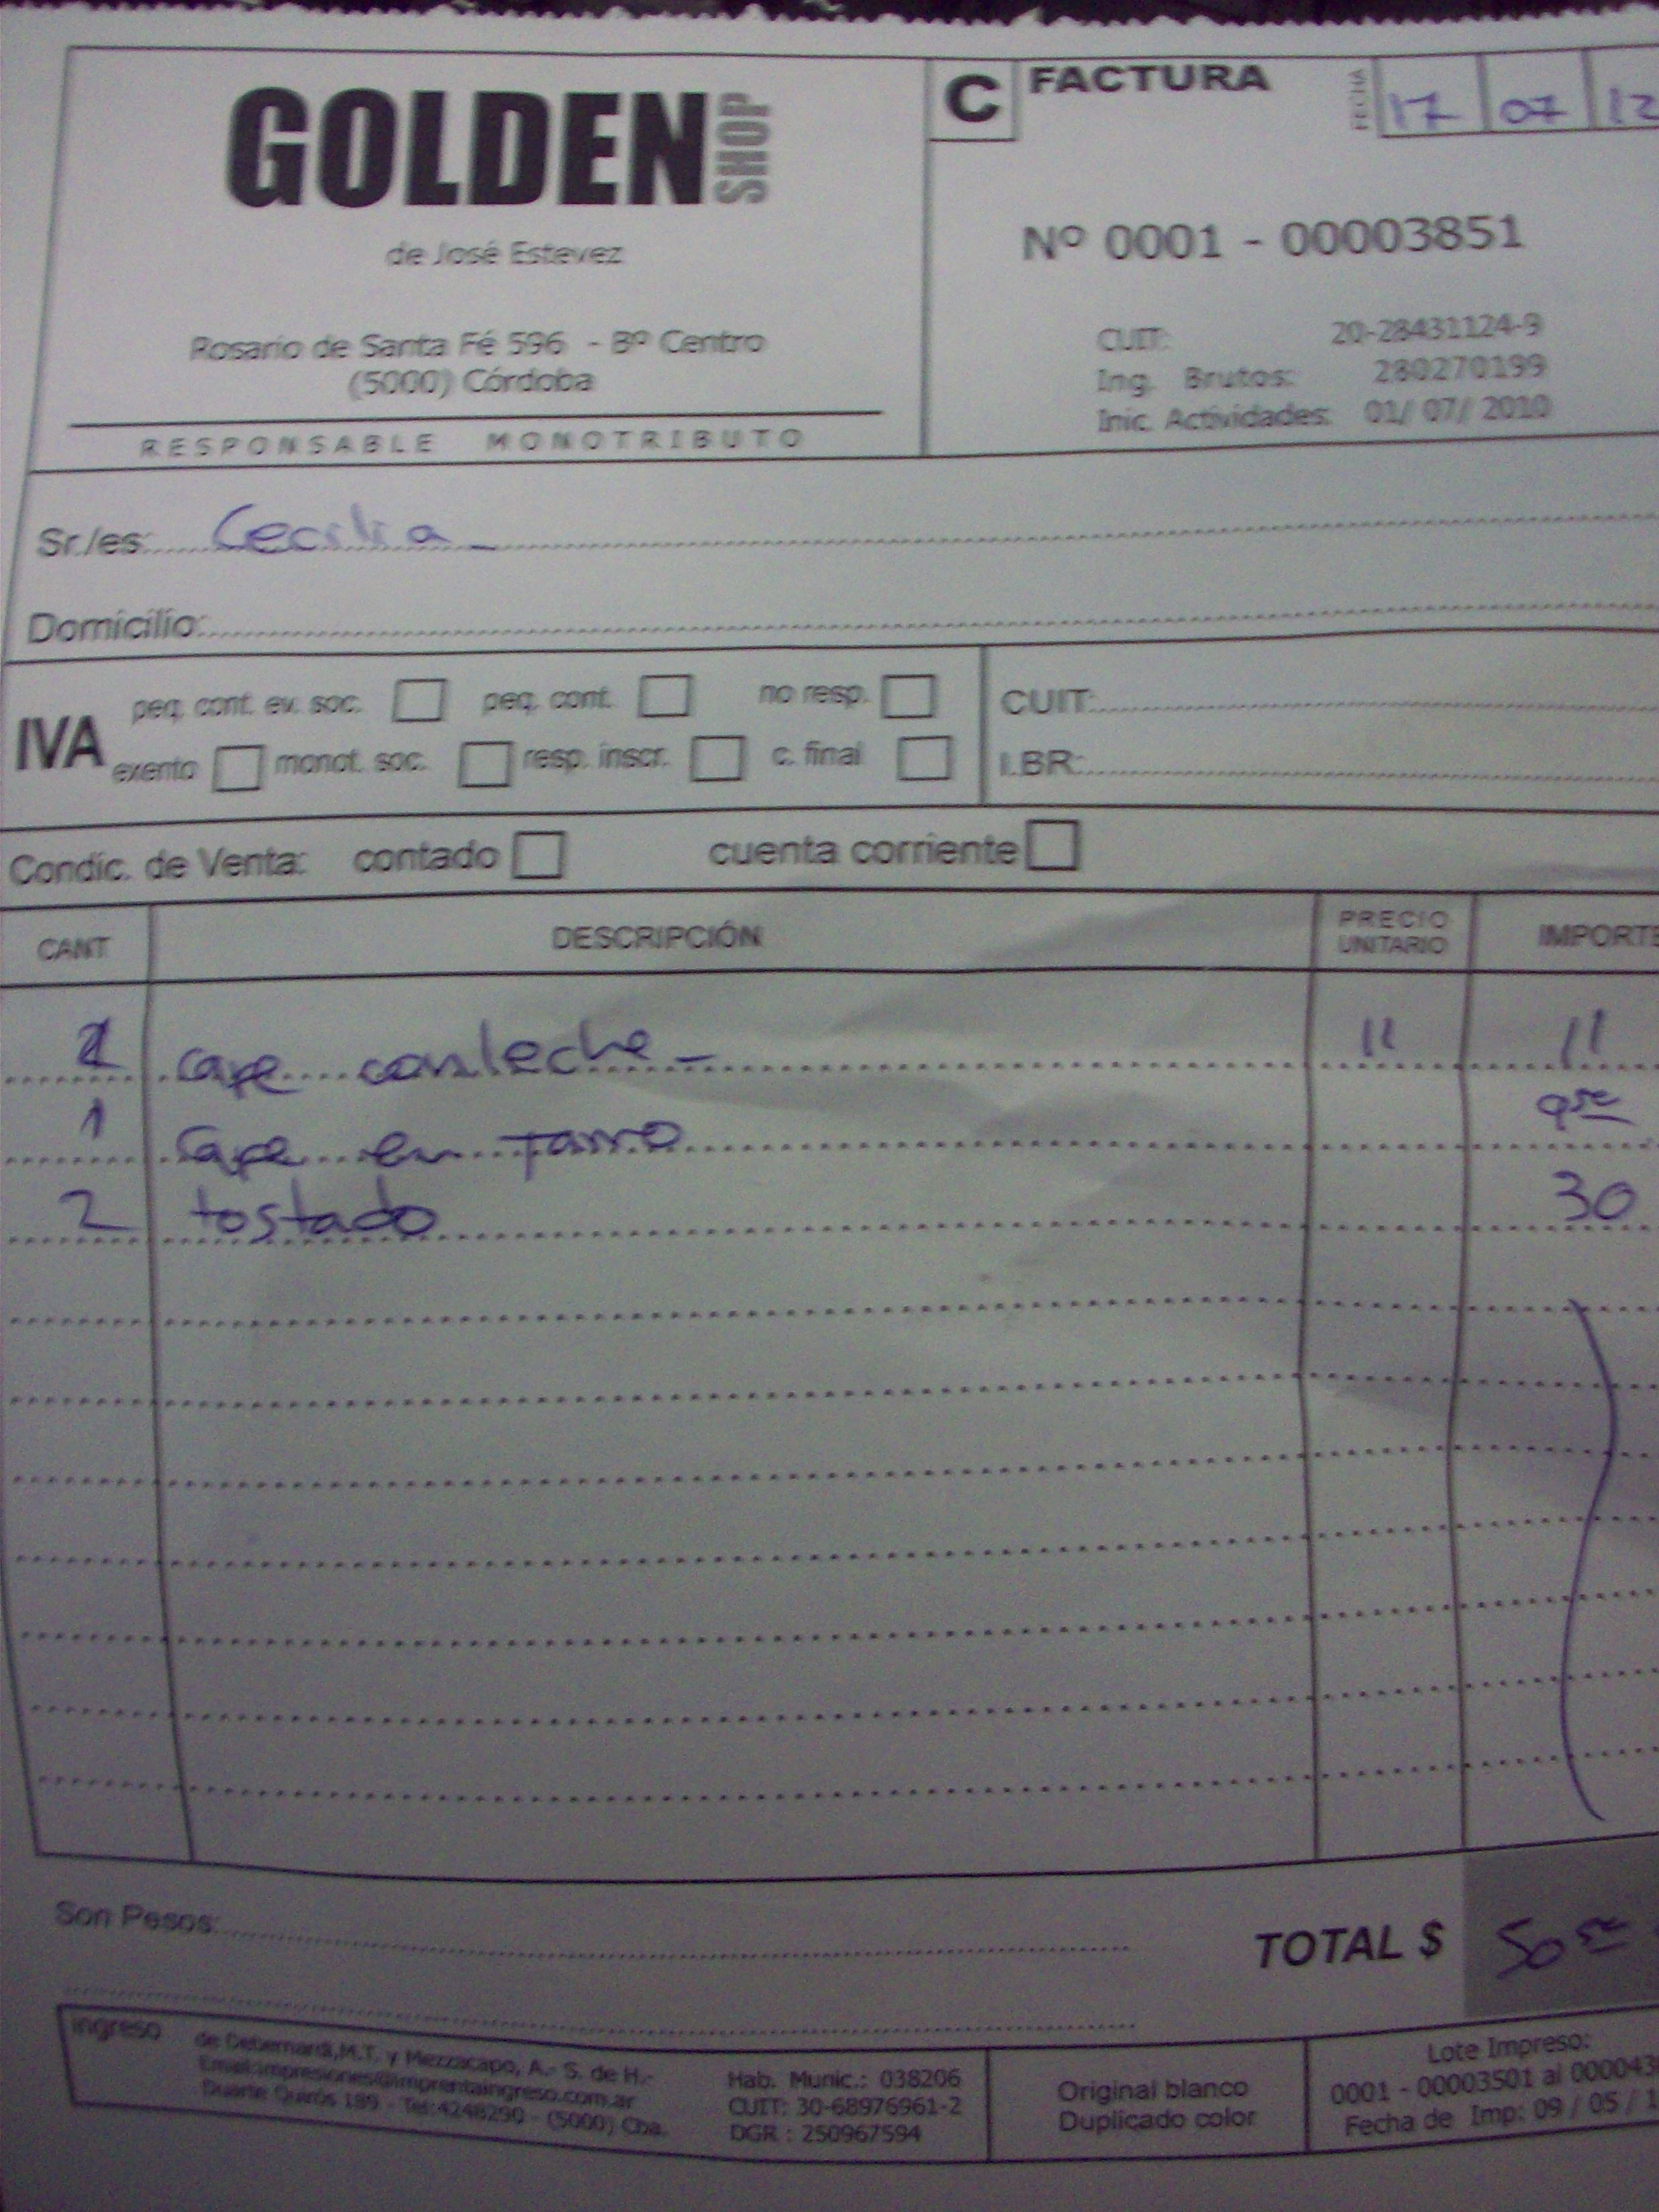 GOLDEN SHOP
de José Estevez
Rosario de Santa Fé 596 - Bº Centro
(5000) Córdoba
RESPONSABLE MONOTRIBUTO
C FACTURA
FECHA 17 07 12
Nº 0001 - 00003851
CUIT: 20-28431124-9
Ing. Brutos: 280270199
Inic. Actividades: 01/ 07/ 2010
Sr./es: Cecilia
Domicilio:
IVA
peq. cont. ev. soc. peq. cont. no resp.
exento monot. soc. resp. inscr. c. final
CUIT:
I.BR:
Condic. de Venta: contado cuenta corriente
CANT DESCRIPCIÓN PRECIO UNITARIO IMPORTE
1 cafe con leche - 11 11
1 cafe en jarro 9 50
2 tostado 30
Son Pesos:
TOTAL $ 50 50
ingreso
de Debernardi,M.T. y Mezzacapo, A.- S. de H.-
Email:impresiones@imprentaingreso.com.ar
Duarte Quirós 189 - Tel:4248290 - (5000) Cba.
Hab. Munic.: 038206
CUIT: 30-68976961-2
DGR : 250967594
Original blanco
Duplicado color
Lote Impreso:
0001 - 00003501 al 000043
Fecha de Imp: 09 / 05 / 1